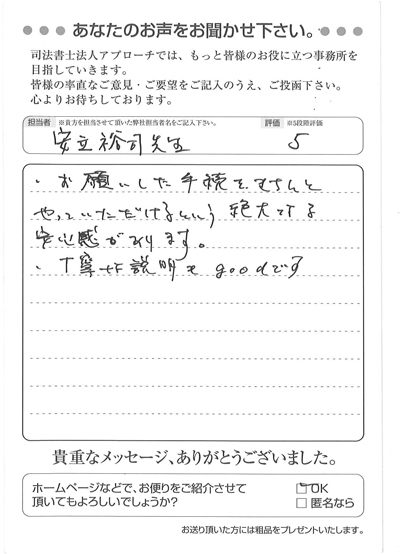 あなたのお声をお聞かせ下さい。
司法書士法人アプローチでは、もっと皆様のお役に立つ事務所を
目指していきます。
皆様の率直なご意見・ご要望をご記入のうえ、ご投函下さい。
心よりお待ちしております。
担当者 ※貴方を担当させて頂いた弊社担当者名をご記入下さい。 評価 ※5段階評価
安立裕司先生 5
・お願いした手続をきちんと
やっていただけるという絶大なる
安心感があります。
・丁寧な説明もgoodです
貴重なメッセージ、ありがとうございました。
ホームページなどで、お便りをご紹介させて
頂いてもよろしいでしょうか?
OK
匿名なら
お送り頂いた方には粗品をプレゼントいたします。